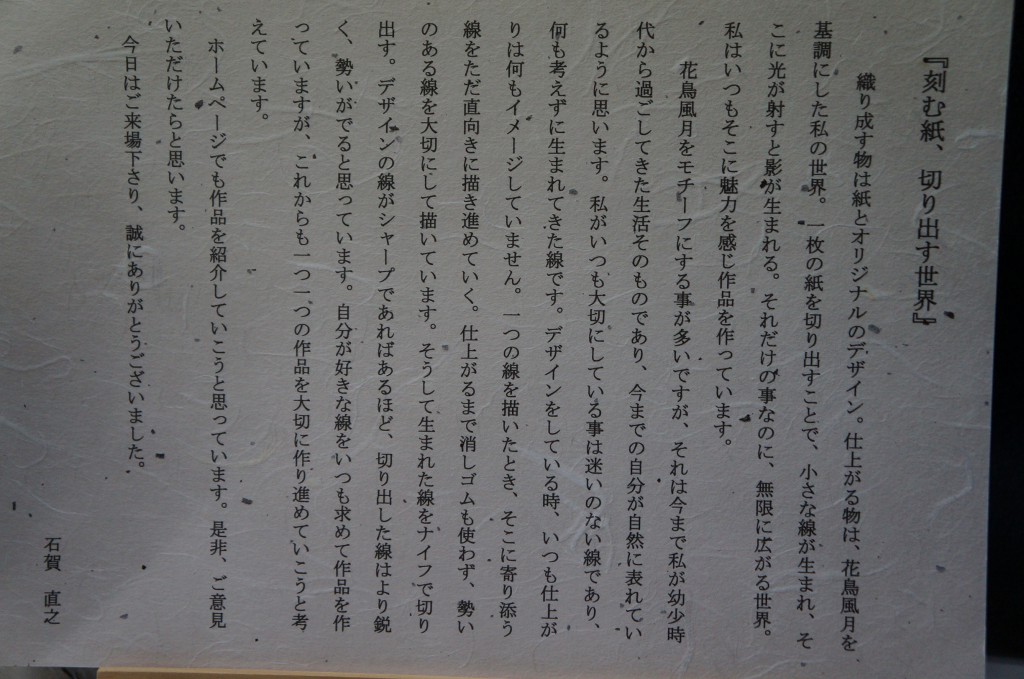 『刻む紙、切り出す世界』
織り成す物は紙とオリジナルのデザイン。仕上がる物は、花鳥風月を
基調にした私の世界。一枚の紙を切り出すことで、小さな線が生まれ、そ
こに光が射すと影が生まれる。それだけの事なのに、無限に広がる世界。
私はいつもそこに魅力を感じ作品を作っています。
花鳥風月をモチーフにする事が多いですが、それは今まで私が幼少時
代から過ごしてきた生活そのものであり、今までの自分が自然に表れてい
るように思います。私がいつも大切にしている事は迷いのない線であり、
何も考えずに生まれてきた線です。デザインをしている時、いつも仕上が
りは何もイメージしていません。一つの線を描いたとき、そこに寄り添う
線をただ直向きに描き進めていく。仕上がるまで消しゴムも使わず、勢い
のある線を大切にして描いています。そうして生まれた線をナイフで切り
出す。デザインの線がシャープであればあるほど、切り出した線はより鋭
く、勢いがでると思っています。自分が好きな線をいつも求めて作品を作
っていますが、これからも一つ一つの作品を大切に作り進めていこうと考
えています。
ホームページでも作品を紹介していこうと思っています。是非、ご意見
いただけたらと思います。
今日はご来場下さり、誠にありがとうございました。
石賀 直之